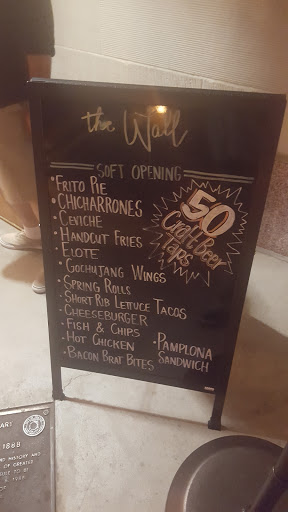 the Wall
SOFT OPENING
• FRITO PIE
• CHICHARRONES
• CEVICHE
• HANDCUT FRIES
• ELOTE
• GOCHUJANG WINGS
• SPRING ROLLS
• SHORT RIB LETTUCE TACOS
• CHEESEBURGER
• FISH & CHIPS
• HOT CHICKEN
• BACON BRAT BITES
• PAMPLONA
SANDWICH
50
Craft Beer
Taps
1868
HISTORY AND
OF GREATER